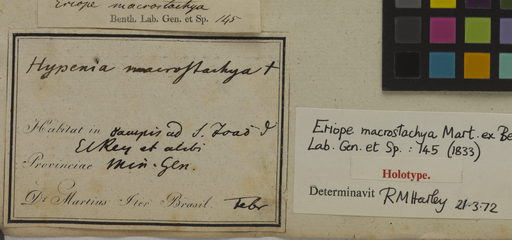 Eriope macrostachya
Benth. Lab. Gen. et Sp. 145
Hypenia macrostachya †
Habitat in campis ad S. Joaõ d'
El Rey et alibi
Provinciae Min. Gen.
Dr Martius Iter Brasil. Febr
Eriope macrostachya Mart. ex Be
Lab. Gen. et Sp. : 145 (1833)
Holotype.
Determinavit RMHarley 21·3·72